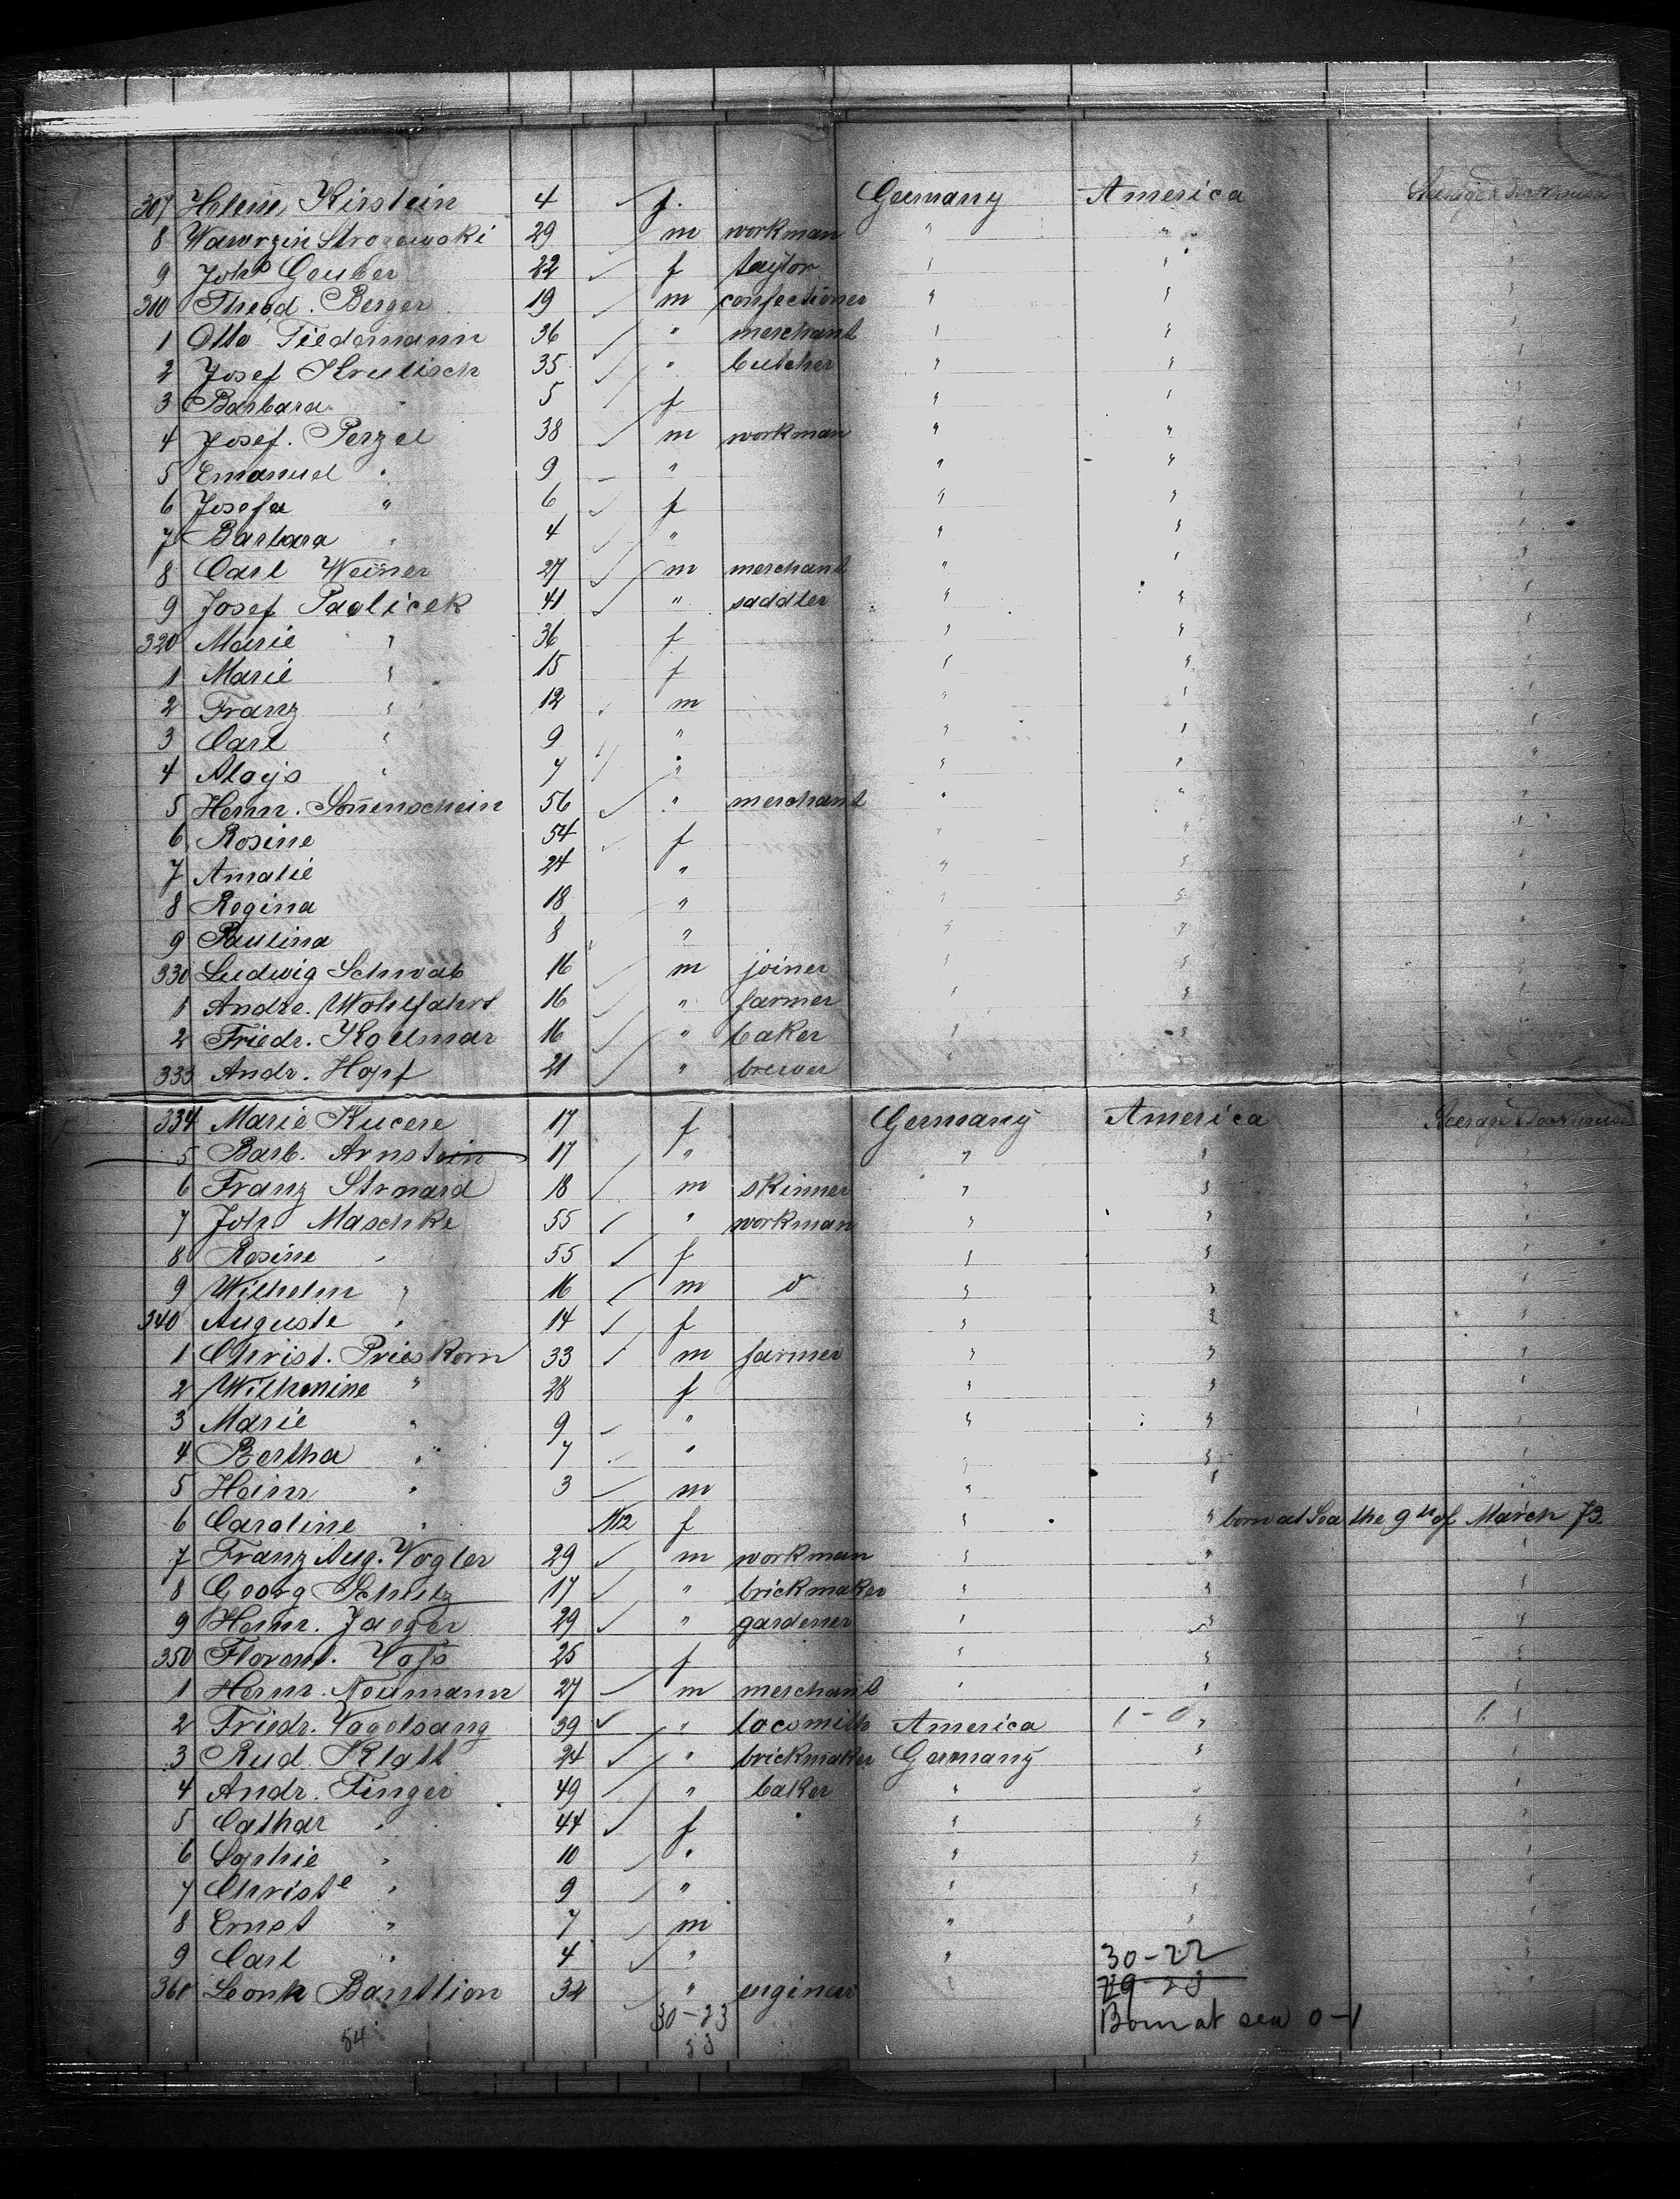 307 Helene Kirstein 4 f. Germany America
8 Wawrzin Strozewski 29 m workman " "
9 Joh Geuber 22 f taylor " "
310 Theod. Berger 19 m confectioner " "
1 Otto Tiedemann 36 " merchant " "
2 Josef Krulisch 35 " butcher " "
3 Barbara " 5 f " "
4 Josef. Perzel 38 m workman " "
5 Emanuel " 9 " " "
6 Josefa " 6 f " "
7 Barbara " 4 " " "
8 Carl Weiner 27 m merchant " "
9 Josef Pavlicek 41 " saddler " "
320 Marie " 36 f " "
1 Marie " 15 f " "
2 Franz " 12 m " "
3 Carl " 9 " " "
4 Aloys " 7 " " "
5 Herm. Sonnenschein 56 " merchant " "
6 Rosine 54 f " "
7 Amalie 24 " " "
8 Regina 18 " " "
9 Paulina 8 " " "
330 Ludwig Schwab 16 m joiner " "
1 Andre. Wohlfahrt 16 " farmer " "
2 Friedr. Kollmar 16 " baker " "
333 Andr. Hopf 21 " brewer
334 Marie Kucere 17 f Germany America
5 Barb. Arnstein 17 " " "
6 Franz Strnard 18 m skinner " "
7 Joh Maschke 55 " workman " "
8 Rosine " 55 f " "
9 Wilhelm " 16 m d " "
340 Auguste " 14 f " "
1 Christ. Prieskorn 33 m farmer " "
2 Wilhmine " 28 f " "
3 Marie " 9 " " "
4 Bertha " 7 " " "
5 Heinr " 3 m " "
6 Caroline " 1/12 f " " born at Sea the 9th of March 73.
7 Franz Aug. Vogler 29 m workman " "
8 Georg Schulz 17 " brickmaker " "
9 Herm. Jaeger 29 " gardener " "
350 Florent. Voss 25 f " "
1 Herm. Neumann 27 m merchant " "
2 Friedr. Vogelsang 39 " locsmith America 1-0 "
3 Rud. Klatt 24 " brickmaker Germany "
4 Andr. Finger 49 " baker " "
5 Cathar " 44 f " "
6 Sophie " 10 " " "
7 Christe " 9 " " "
8 Ernst " 7 m " "
9 Carl " 4 " " 30-22
360 " engineer 29-23
54 30-23 Born at sea 0-1
53